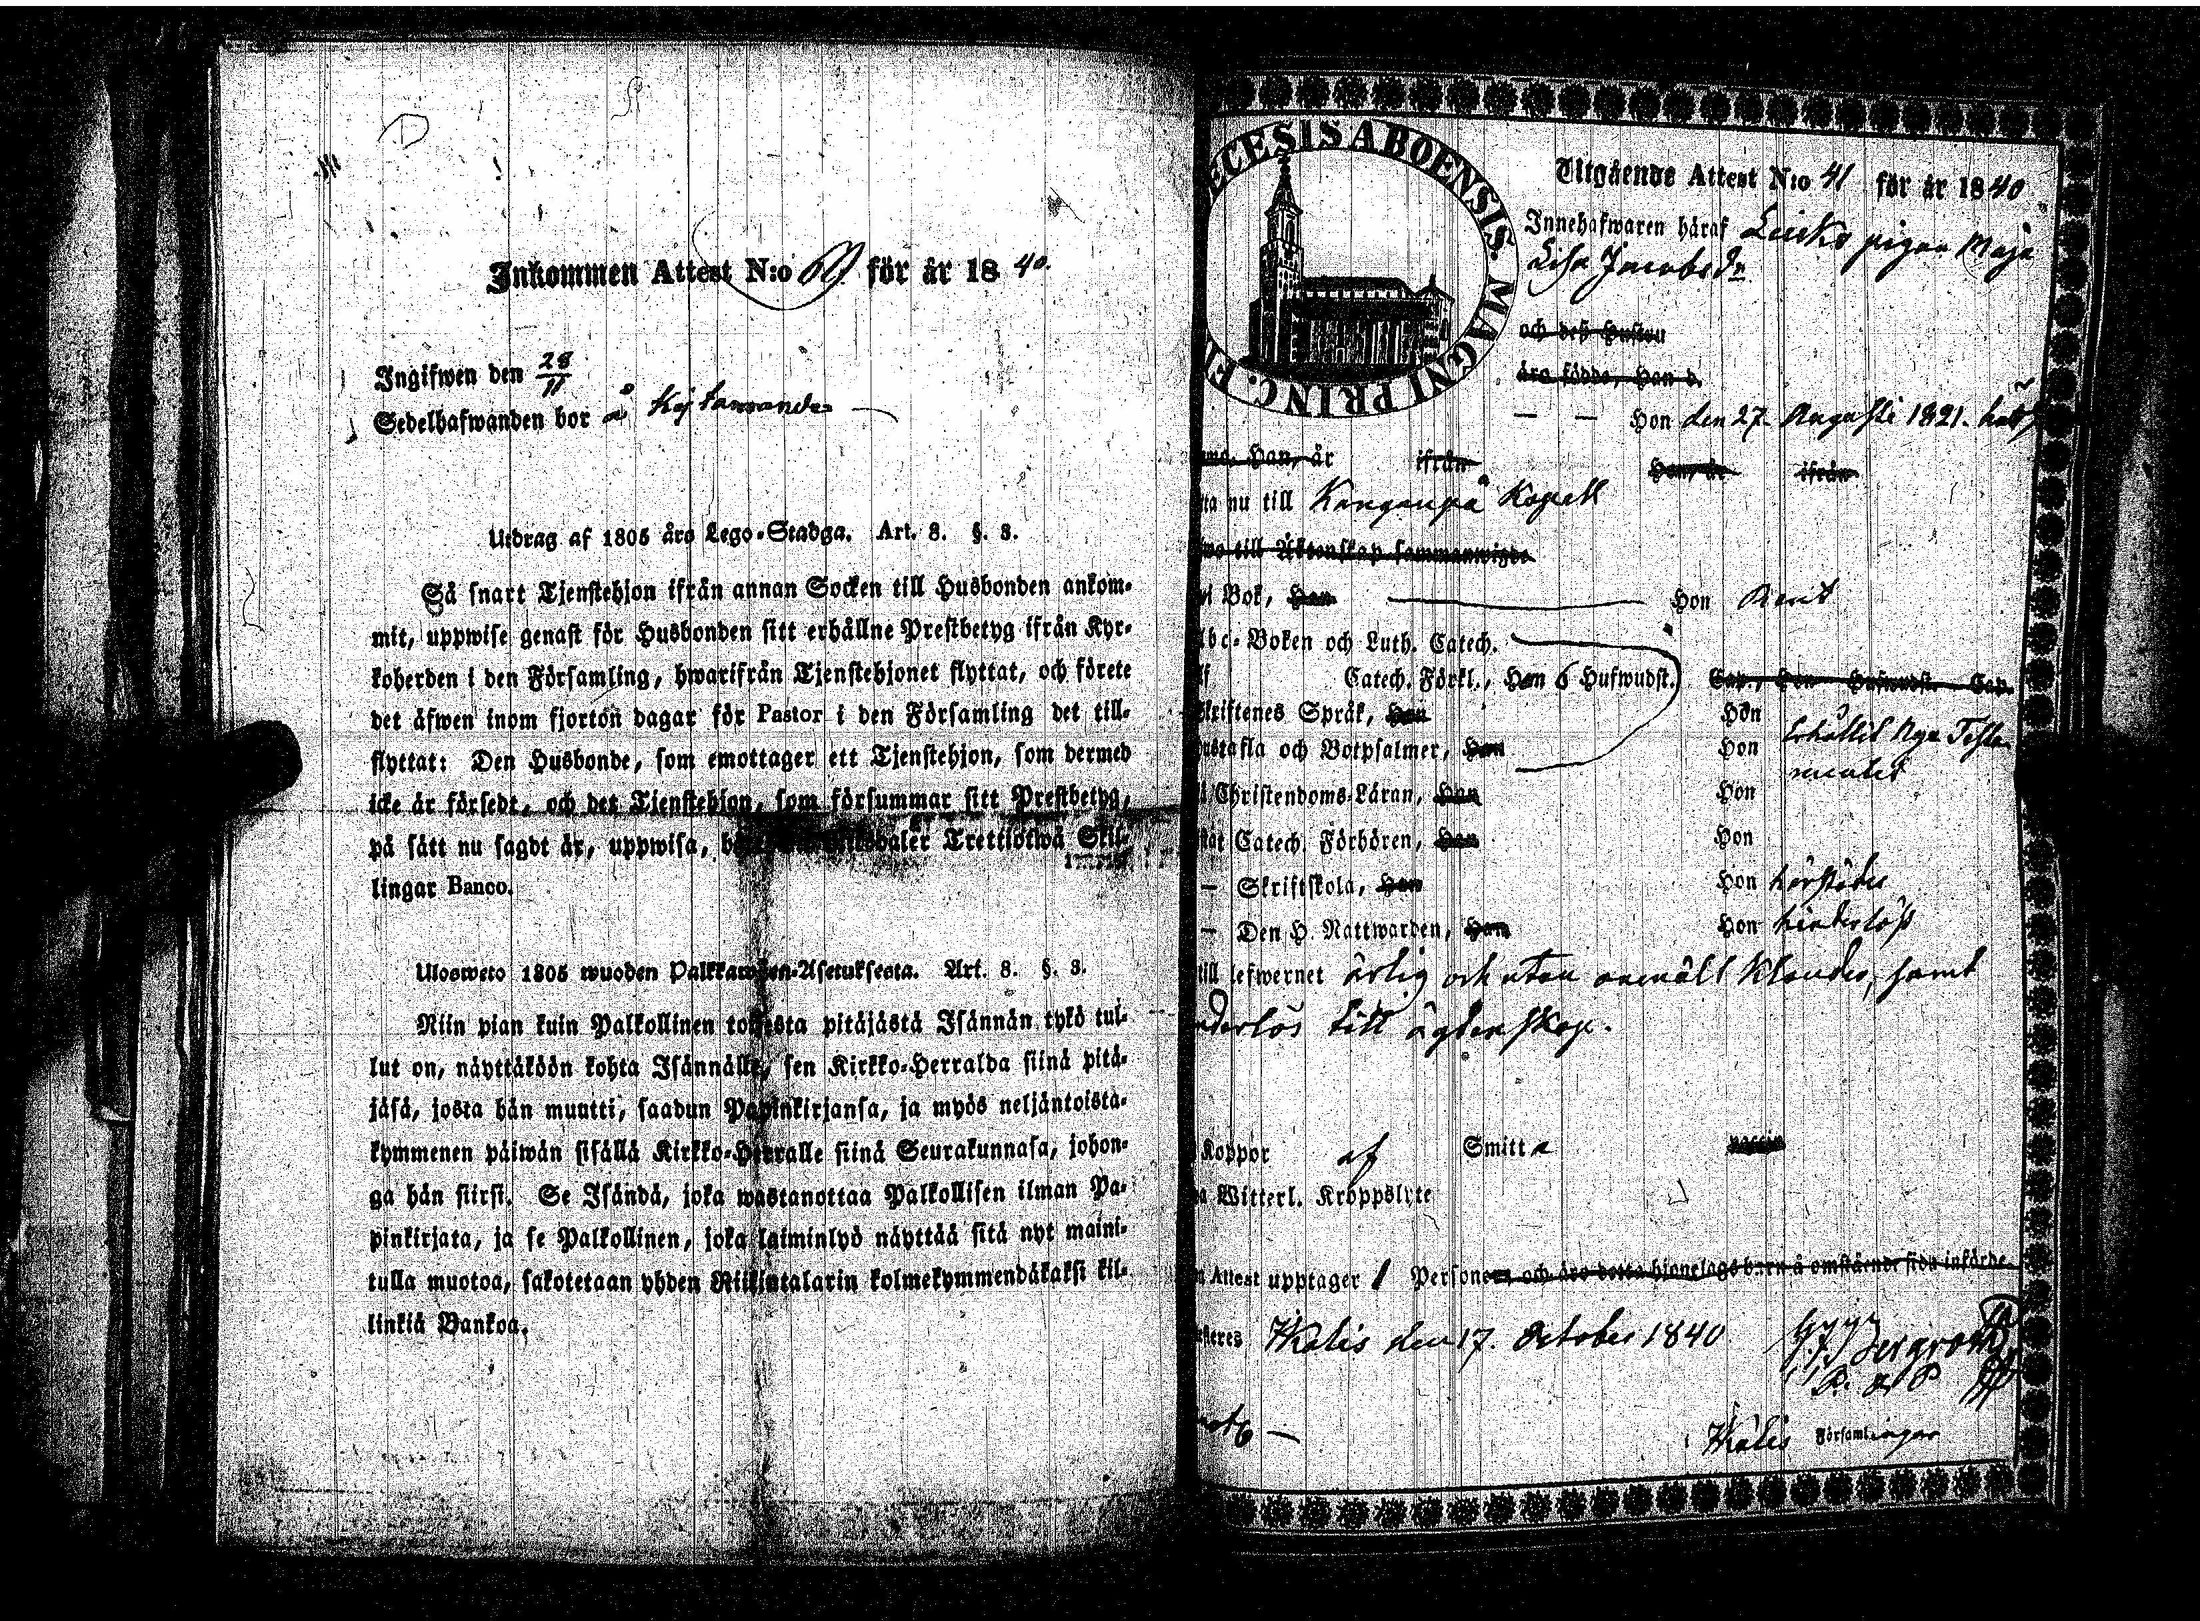 Inkommen Attest N:o för år 1840.
Ingifwen den 28/11
Sedelhafwanden bor å
Utdrag af 1805 års Lego-Stadga. Art. 8. §. 3.
Så snart Tjenstehjon ifrån annan Socken till Husbonden ankom-
mit, uppwise genast för Husbonden sitt erhållne Prestbetyg ifrån Kyr-
koherden i den Församling, hwarifrån Tjenstehjonet flyttat, och förete
det äfwen inom fjorton dagar för Pastor i den Församling det till-
flyttat: Den Husbonde, som emottager ett Tjenstehjon, som dermed
icke är försedt, och det Tjenstehjon, som försummar sitt Prestbetyg,
på sätt nu sagdt är, uppwisa, Trettiotwå Skil-
lingar Banco.
Ulosweto 1805 wuoden Palkkawäen-Asetuksesta. Art. 8. §. 3.
Niin pian kuin Palkollinen toisesta pitäjästä Isännän tykö tul-
lut on, näyttäköön kohta Isännälle, sen Kirkko-Herralda siinä pitä-
jäsä, josta hän muutti, saadun Papinkirjansa, ja myös neljäntoista-
kymmenen päiwän sisällä Kirkko-Herralle siinä Seurakunnasa, johon-
ga hän siirsi. Se Isändä, joka wastanottaa Palkollisen ilman Pa-
pinkirjata, ja se Palkollinen, joka laiminlyö näyttää sitä nyt maini-
tulla muotoa, sakotetaan yhden Riikintalarin kolmekymmendäkaksi kil-
linkiä Bankoa.
ECESIS ABOENSIS. MAGNI PRINC. FI
Utgående Attest N:o 41 för år 1840
Innehafwaren häraf pigan Maja
Lisa Jacobsdr
och deß Hustru
äro födde, Han d.
— — Hon den 27. Augusti 1821.
Han, är ifrån Hon, är ifrån
ta nu till Kangaspä Kapell
till Äktenskap sammanwigde
i Bok, Han Hon Rent
Abc-Boken och Luth. Catech.
Catech. Förkl., Han 6 Hufwudst. Cap., Hon Hufwudst. Cap.
Skriftenes Språk, Han Hon
Hustafla och Botpsalmer, Han Hon Erhållit Nya Testa-
mentet
i Christendoms-Läran, Han Hon
Catech. Förhören, Han Hon
— Skriftskola, Han Hon härstädes
— Den H. Nattwarden, Han Hon hinderlöst
till lefwernet ärlig och utan anmält Klander, samt
nderlös till ägtenskap.
Koppor af Smitta
Witterl. Kroppslyte
Attest upptager 1 Personer och äro detta hjonelags barn å omstående sida införde.
Kalis den 17. October 1840
Kalis Församlingar